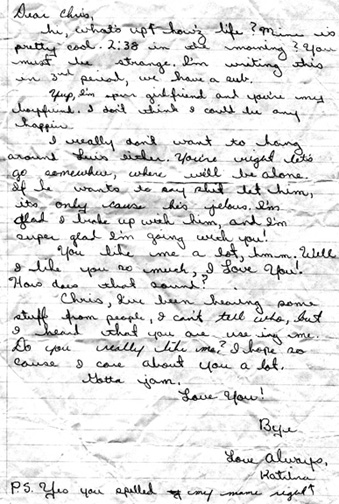 Dear Chris,
hi, what's up? how'z life? Mine is
pretty cool. 2:38 in the morning? You
must be strange. I'm writing this
in 3rd period, we have a sub.
Yup, I'm your girlfriend and you're my
boyfriend. I don't think I could be any
happier.
I really don't want to hang
around him either. You're right let's
go somewhere, where will be alone.
If he wants to say shit let him,
its only 'cause he's jelous. I'm
glad I broke up with him, and I'm
super glad I'm going with you!
You like me a lot, hmm. Well
I like you so much, I Love You!
How does that sound?
Chris, I've been hearing some
stuff from people, I can't tell who, but
I heard that you are use ing me.
Do you really like me? I hope so
cause I care about you a lot.
Gotta jam.
Love You!
Bye
Love Always,
Katrina
P.S. Yes you spelled my name right